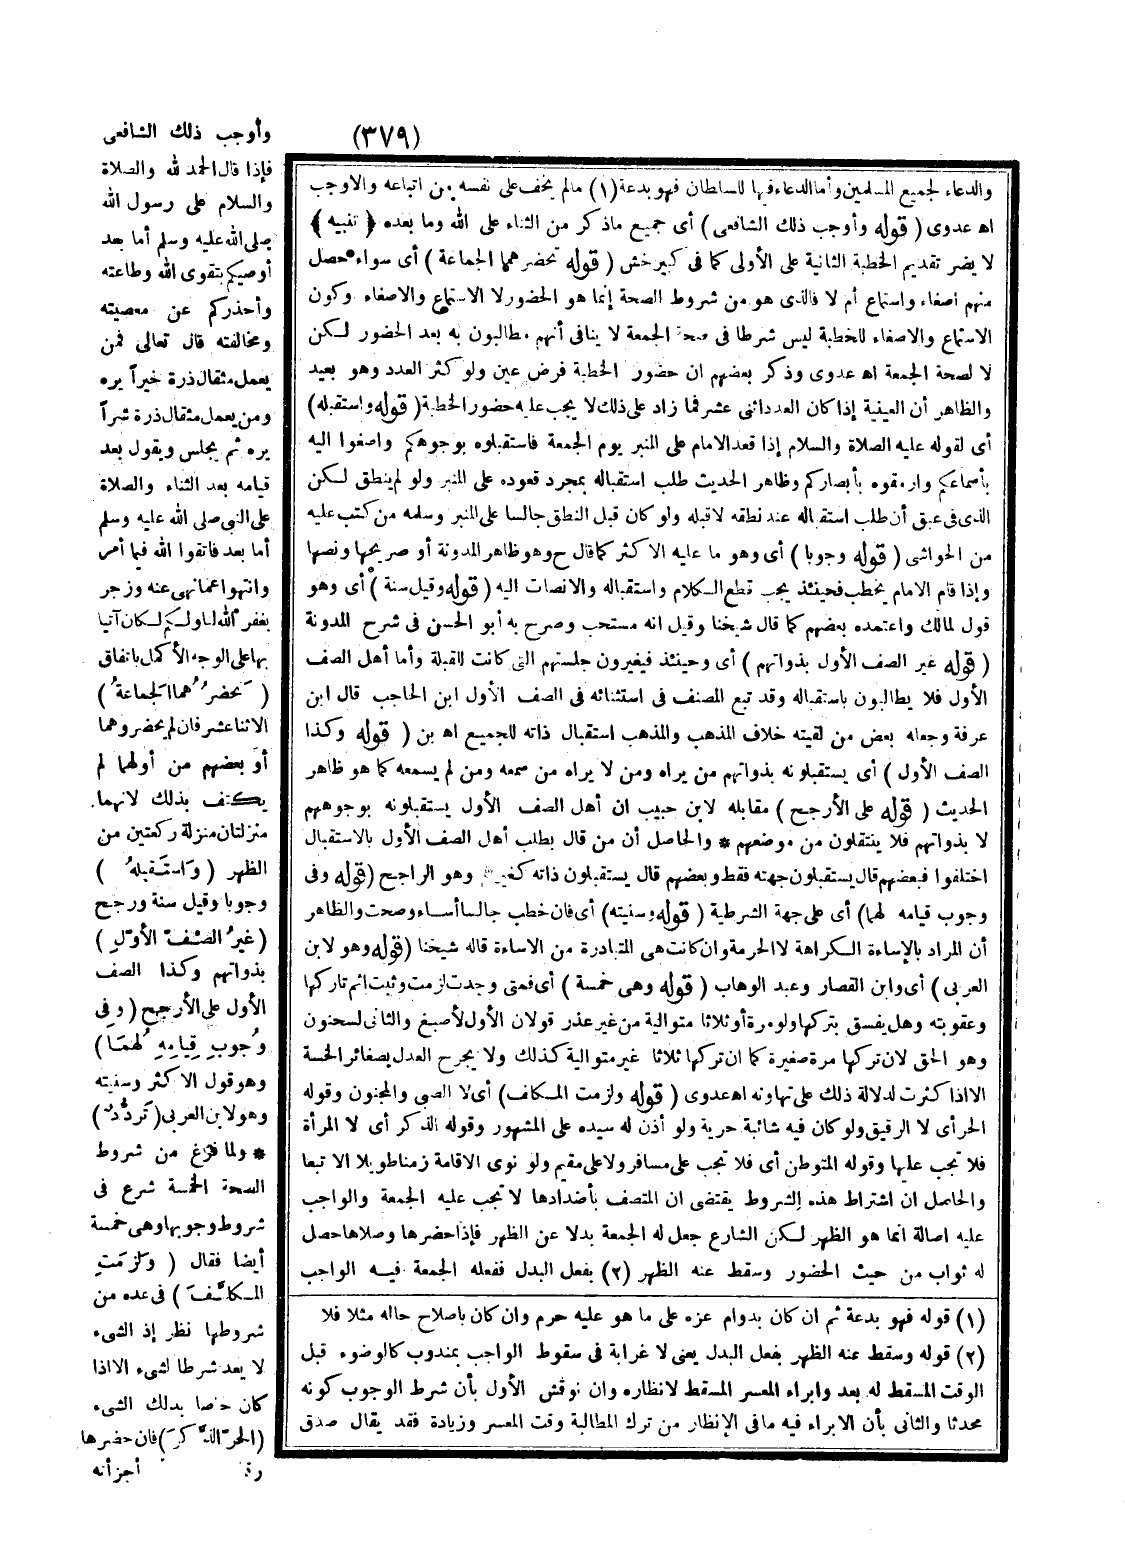 (٣٧٩)
والدعاء لجميع المسلمين وأما الدعاء فيها للسلطان فهو بدعة (١) مالم يخف على نفسه من اتباعه والاوجب
اه عدوى (قوله وأوجب ذلك الشافعى) أى جميع ماذكر من الثناء على الله وما بعده ﴿تنبيه﴾
لا يضر تقديم الخطبة الثانية على الأولى كما فى كبير خش (قوله تحضرهما الجماعة) أى سواء حصل
منهم اصغاء واستماع أم لا فالذى هو من شروط الصحة إنما هو الحضور لا الاستماع والاصغاء وكون
الاستماع والاصغاء للخطبة ليس شرطا فى صحة الجمعة لا ينافى أنهم مطالبون به بعد الحضور لكن
لا لصحة الجمعة اه عدوى وذكر بعضهم ان حضور الخطبة فرض عين ولو كثر العدد وهو بعيد
والظاهر أن العينية إذا كان العدد اثنى عشر فما زاد على ذلك لا يجب عليه حضور الخطبة (قوله واستقبله)
أى لقوله عليه الصلاة والسلام إذا قعد الامام على المنبر يوم الجمعة فاستقبلوه بوجوهكم واصغوا اليه
بأسماعكم وارمقوه بأبصاركم وظاهر الحديث طلب استقباله بمجرد قعوده على المنبر ولو لم ينطق لكن
الذى فى عبق أن طلب استقباله عند نطقه لا قبله ولو كان قبل النطق جالسا على المنبر وسلمه من كتب عليه
من الحواشى (قوله وجوبا) أى وهو ما عليه الاكثر كما قال ح وهو ظاهر المدونة أو صريحها ونصها
وإذا قام الامام يخطب فحينئذ يجب قطع الكلام واستقباله والانصات اليه (قوله وقيل سنة) أى وهو
قول لمالك واعتمده بعضهم كما قال شيخنا وقيل انه مستحب وصرح به أبو الحسن فى شرح المدونة
(قوله غير الصف الأول بذواتهم) أى وحينئذ فيغيرون جلستهم التى كانت للقبلة وأما أهل الصف
الأول فلا يطالبون باستقباله وقد تبع المصنف فى استثنائه فى الصف الأول ابن الحاجب قال ابن
عرفة وجعله بعض من لقيته خلاف المذهب والمذهب استقبال ذاته للجميع اه بن (قوله وكذا
الصف الأول) أى يستقبلونه بذواتهم من يراه ومن لا يراه من سمعه ومن لم يسمعه كما هو ظاهر
الحديث (قوله على الأرجح) مقابله لابن حبيب ان أهل الصف الأول يستقبلونه بوجوههم
لا بذواتهم فلا ينتقلون من موضعهم * والحاصل أن من قال بطلب أهل الصف الأول بالاستقبال
اختلفوا فبعضهم قال يستقبلون جهته فقط وبعضهم قال يستقبلون ذاته كغيرهم وهو الراجح (قوله وفى
وجوب قيامه لهما) أى على جهة الشرطية (قوله وسنيته) أى فان خطب جالسا أساء وصحت والظاهر
أن المراد بالإساءة الكراهة لا الحرمة وان كانت هى المتبادرة من الاساءة قاله شيخنا (قوله وهو لابن
العربى) أى وابن القصار وعبد الوهاب (قوله وهى خمسة) أى فمتى وجدت لزمت وثبت اثم تاركها
وعقوبته وهل يفسق بتركها ولو مرة أو ثلاثا متوالية من غير عذر قولان الأول لأصبغ والثانى لسحنون
وهو الحق لان تركها مرة صغيرة كما ان تركها ثلاثا غير متوالية كذلك ولا يجرح العدل بصغائر الخسة
الا اذا كثرت لدلالة ذلك على تهاونه اه عدوى (قوله ولزمت المكلف) أى لا الصبى والمجنون وقوله
الحر أى لا الرقيق ولو كان فيه شائبة حرية ولو أذن له سيده على المشهور وقوله الذكر أى لا المرأة
فلا تجب عليها وقوله المتوطن أى فلا تجب على مسافر ولا على مقيم ولو نوى الاقامة زمنا طويلا الا تبعا
والحاصل ان اشتراط هذه الشروط يقتضى ان المتصف بأضدادها لا تجب عليه الجمعة والواجب
عليه اصالة انما هو الظهر لكن الشارع جعل له الجمعة بدلا عن الظهر فإذا حضرها وصلاها حصل
له ثواب من حيث الحضور وسقط عنه الظهر (٢) بفعل البدل ففعله الجمعة فيه الواجب
(١) قوله فهو بدعة ثم ان كان بدوام عزه على ما هو عليه حرم وان كان باصلاح حاله مثلا فلا
(٢) قوله وسقط عنه الظهر بفعل البدل يعنى لا غرابة فى سقوط الواجب بمندوب كالوضوء قبل
الوقت المسقط له بعد وابراء المعسر المسقط لانظاره وان نوقش الأول بأن شرط الوجوب كونه
محدثا والثانى بأن الابراء فيه مافى الإنظار من ترك المطالبة وقت المعسر وزيادة فقد يقال صدق
وأوجب ذلك الشافعى
فإذا قال الحمد لله والصلاة
والسلام على رسول الله
صلى الله عليه وسلم أما بعد
أوصيكم بتقوى الله وطاعته
وأحذركم عن معصيته
ومخالفته قال تعالى فمن
يعمل مثقال ذرة خيراً يره
ومن يعمل مثقال ذرة شراً
يره ثم يجلس ويقول بعد
قيامه بعد الثناء والصلاة
على النبى صلى الله عليه وسلم
أما بعد فاتقوا الله فيما أمر
وانتهوا عما نهى عنه وزجر
يغفر الله لنا ولكم لكان آتيا
بها على الوجه الأكمل باتفاق
(تَحْضُرُهُما الجَماعةُ)
الاثنا عشر فان لم يحضروهما
أو بعضهم من أولهما لم
يكتف بذلك لانهما
منزلتان منزلة ركعتين من
الظهر (وَاسْتَقْبَلَهُ)
وجوبا وقيل سنة ورجح
(غيرُ الصَّفِّ الأوَّلِ)
بذواتهم وكذا الصف
الأول على الأرجح (وفى
وُجوبِ قِيامِهِ لهُمَا)
وهو قول الاكثر وسنيته
وهو لابن العربى (تَردُّدٌ)
* ولما فرغ من شروط
الصحة الخمسة شرع فى
شروط وجوبها وهى خمسة
أيضا فقال (ولَزِمَتِ
المكَلَّفَ) فى عده من
شروطها نظر إذ الشىء
لا يعد شرطا لشىء الا اذا
كان خاصا بذلك الشىء
(الحرَّ الذَّكرَ) فان حضرها
أجزأته